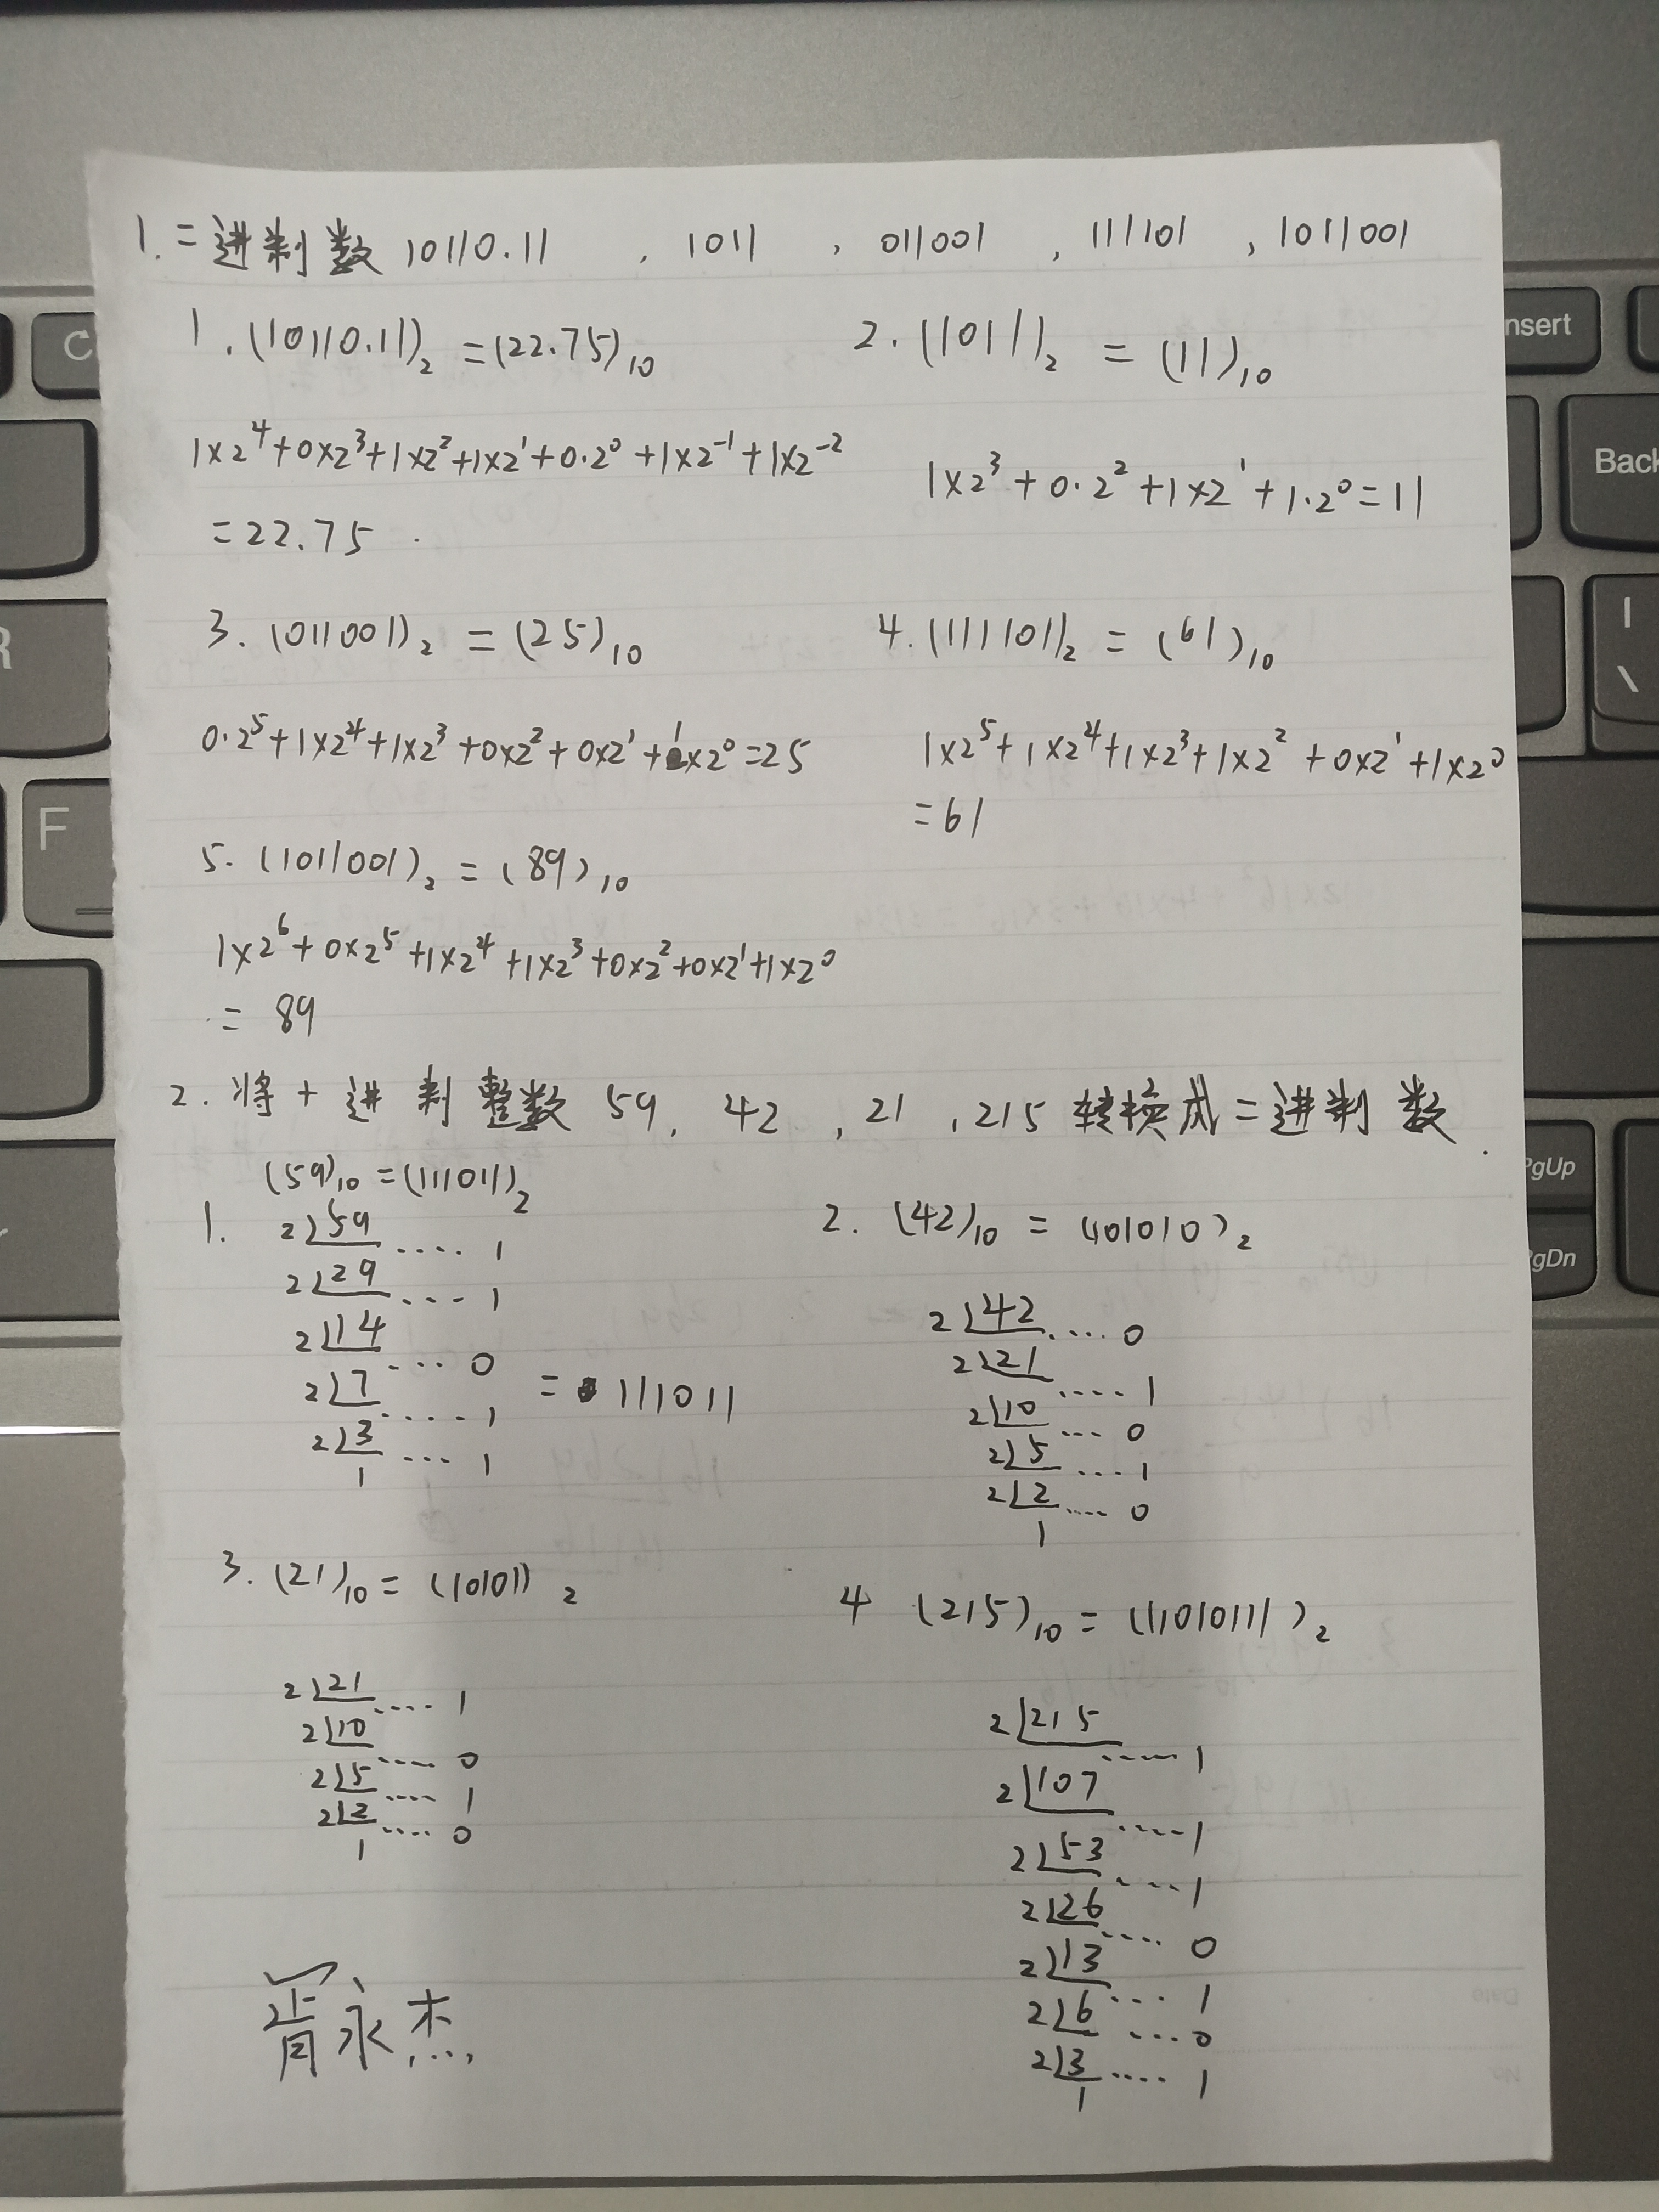 1. 二进制数 10110.11 , 1011 , 011001 , 111101 , 1011001
1. (10110.11)₂ = (22.75)₁₀
1×2⁴+0×2³+1×2²+1×2¹+0·2⁰+1×2⁻¹+1×2⁻²
=22.75
2. (1011)₂ = (11)₁₀
1×2³+0·2²+1×2¹+1·2⁰=11
3. (011001)₂ = (25)₁₀
0·2⁵+1×2⁴+1×2³+0×2²+0×2¹+1×2⁰=25
4. (111101)₂ = (61)₁₀
1×2⁵+1×2⁴+1×2³+1×2²+0×2¹+1×2⁰
=61
5. (1011001)₂ = (89)₁₀
1×2⁶+0×2⁵+1×2⁴+1×2³+0×2²+0×2¹+1×2⁰
= 89
2. 将十进制整数 59, 42 , 21 , 215 转换成二进制数.
(59)₁₀ = (111011)₂
1. 2 59 .... 1
2 29 .... 1
2 14 ... 0
2 7 ..... 1
2 3 .... 1
1
= 111011
2. (42)₁₀ = (101010)₂
2 42 .... 0
2 21 .... 1
2 10 ... 0
2 5 .... 1
2 2 .... 0
1
3. (21)₁₀ = (10101)₂
2 21 .... 1
2 10 .... 0
2 5 .... 1
2 2 .... 0
1
4 (215)₁₀ = (11010111)₂
2 215 ..... 1
2 107 ..... 1
2 53 .... 1
2 26 .... 0
2 13 .... 1
2 6 .... 0
2 3 .... 1
1
永杰
C
nsert
Back
R
|
\
F
PgUp
PgDn